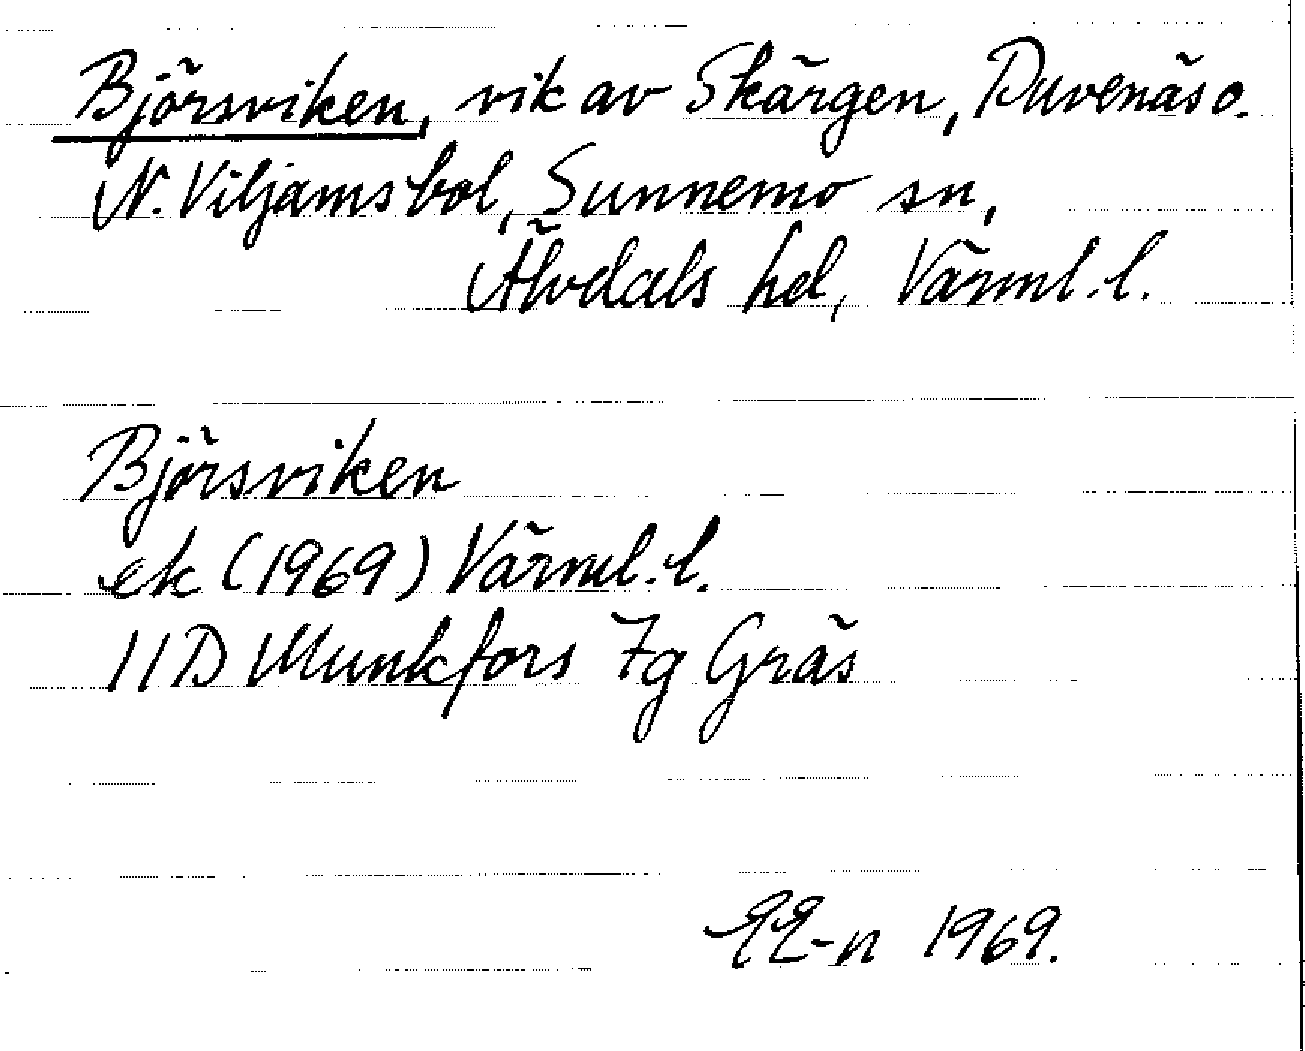 Björsviken, vik av Skärgen, Duvenäs o.
N. Viljamsbol, Sunnemo sn,
Älvdals hd, Värml. l.
Björsviken
ek (1969) Värml. l.
11D Munkfors 7g Gräs
EE-n 1969.